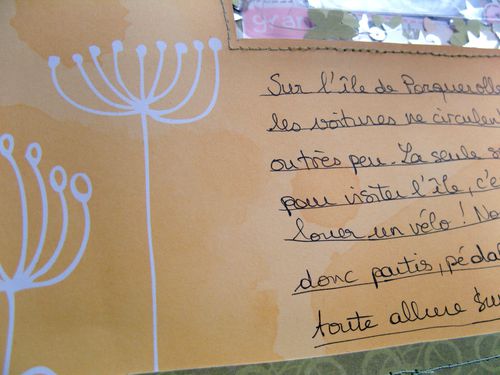 gran
Sur l'île de Porquerolle
les voitures ne circulent
outrès peu. La seule
pour visiter l'île, c'e
louer un vélo ! No
donc partis, pédal
toute allure sur